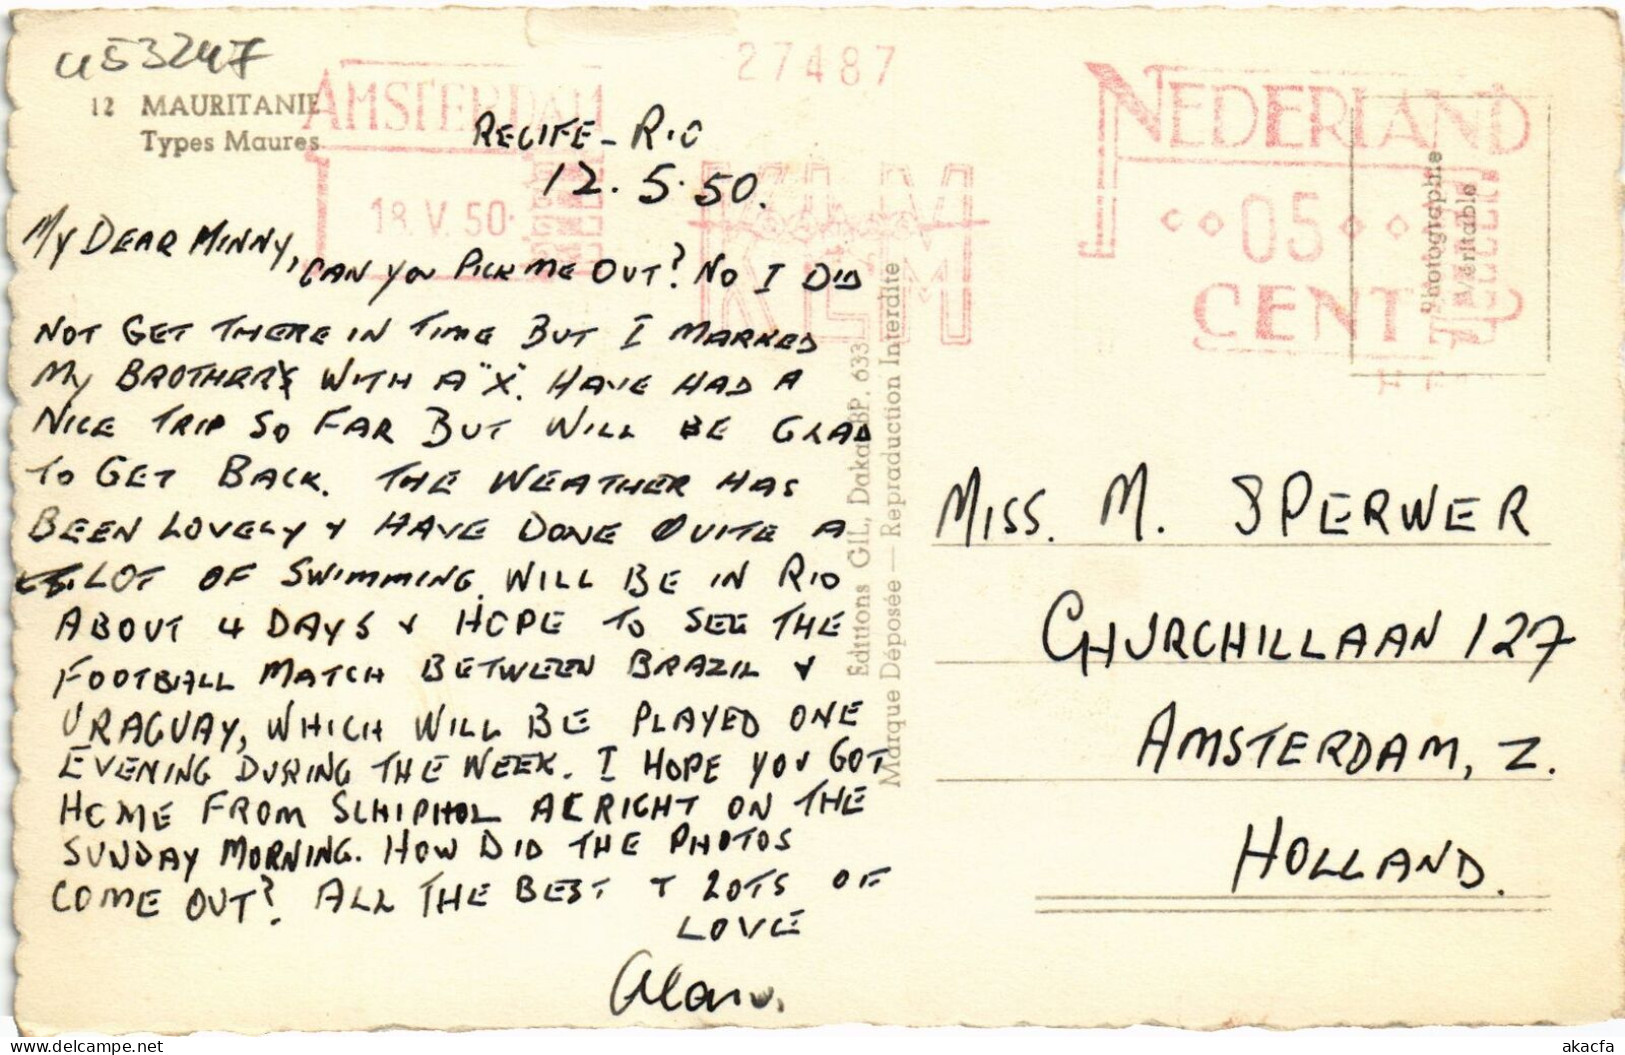 453247
12 MAURITANIE
Types Maures
AMSTERDAM
18.V.50
27487
KLM
NEDERLAND
05
CENT
Photographie
Véritable
RECIFE - RIO
12.5.50.
MY DEAR MINNY,
CAN YOU PICK ME OUT? NO I DID
NOT GET THERE IN TIME BUT I MARKED
MY BROTHER WITH A "X". HAVE HAD A
NICE TRIP SO FAR BUT WILL BE GLAD
TO GET BACK. THE WEATHER HAS
BEEN LOVELY & HAVE DONE QUITE A
LOT OF SWIMMING. WILL BE IN RIO
ABOUT 4 DAYS & HOPE TO SEE THE
FOOTBALL MATCH BETWEEN BRAZIL &
URAGUAY, WHICH WILL BE PLAYED ONE
EVENING DURING THE WEEK. I HOPE YOU GOT
HOME FROM SCHIPHOL ALRIGHT ON THE
SUNDAY MORNING. HOW DID THE PHOTOS
COME OUT? ALL THE BEST & LOTS OF
LOVE
Alan.
Editions GIL, Dakar BP. 633
Marque Déposée — Reproduction Interdite
MISS. M. SPERWER
CHURCHILLAAN 127
AMSTERDAM, Z.
HOLLAND.
www.delcampe.net
akacfa